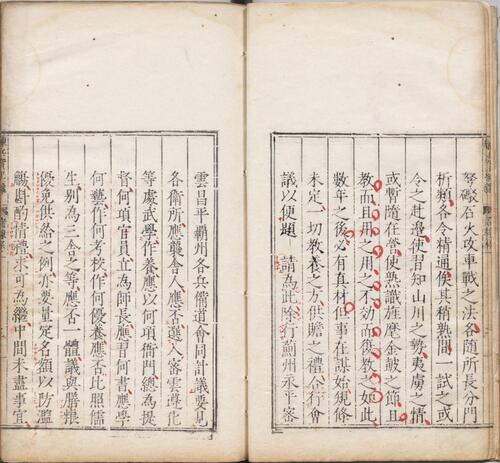 弩礮石火攻車戰之法各隨所長分門
析類各令精通俟其稍熟間一試之或
令之赴邊使習知山川之勢夷虜之情
或暫隨在營使熟識旌麾金鼓之節且
教而且用之用之不效而復教之如此
數年之後必有真材但事在謀始規條
未定一切教養之方供贍之禮合行會
議以便題 請爲此除行薊州永平密
雲昌平霸州各兵備道會同計議要見
各衛所應襲舍人應否選入密雲遵化
等處武學作養應以何項衙門總爲提
督何項官員立爲師長應習何書應學
何藝作何考校作何優養應否比照儒
生別爲三舍之等應否一體議與廩帳
優免供給之例亦要量定名額以防濫
觴斟酌情禮求可爲繼中間未盡事宜